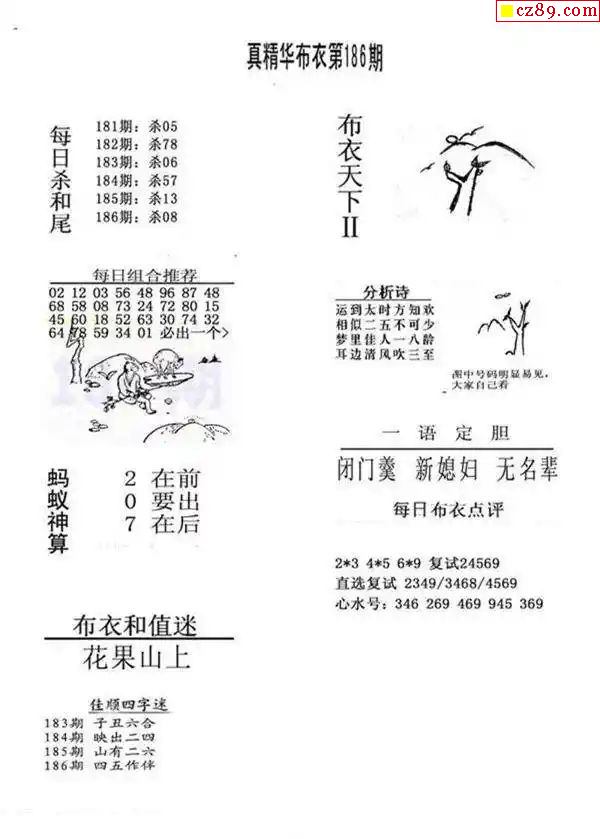 cz89.com
真精华布衣第186期
每日杀和尾
181期：杀05
182期：杀78
183期：杀06
184期：杀57
185期：杀13
186期：杀08
布衣天下II
每日组合推荐
02 12 03 56 48 96 87 48
68 58 08 73 24 72 80 15
45 60 18 52 63 30 74 32
64 78 59 34 01 必出一个>
分析诗
运到太时方知欢
相似二五不可少
梦里佳人一八龄
耳边清风吹三至
图中号码明显易见，
大家自己看
蚂蚁神算
2 在前
0 要出
7 在后
一语定胆
闭门羹 新媳妇 无名辈
每日布衣点评
2*3 4*5 6*9 复试24569
直选复试 2349/3468/4569
心水号：346 269 469 945 369
布衣和值迷
花果山上
佳顺四字迷
183期 子丑六合
184期 映出二四
185期 山有二六
186期 四五作伴